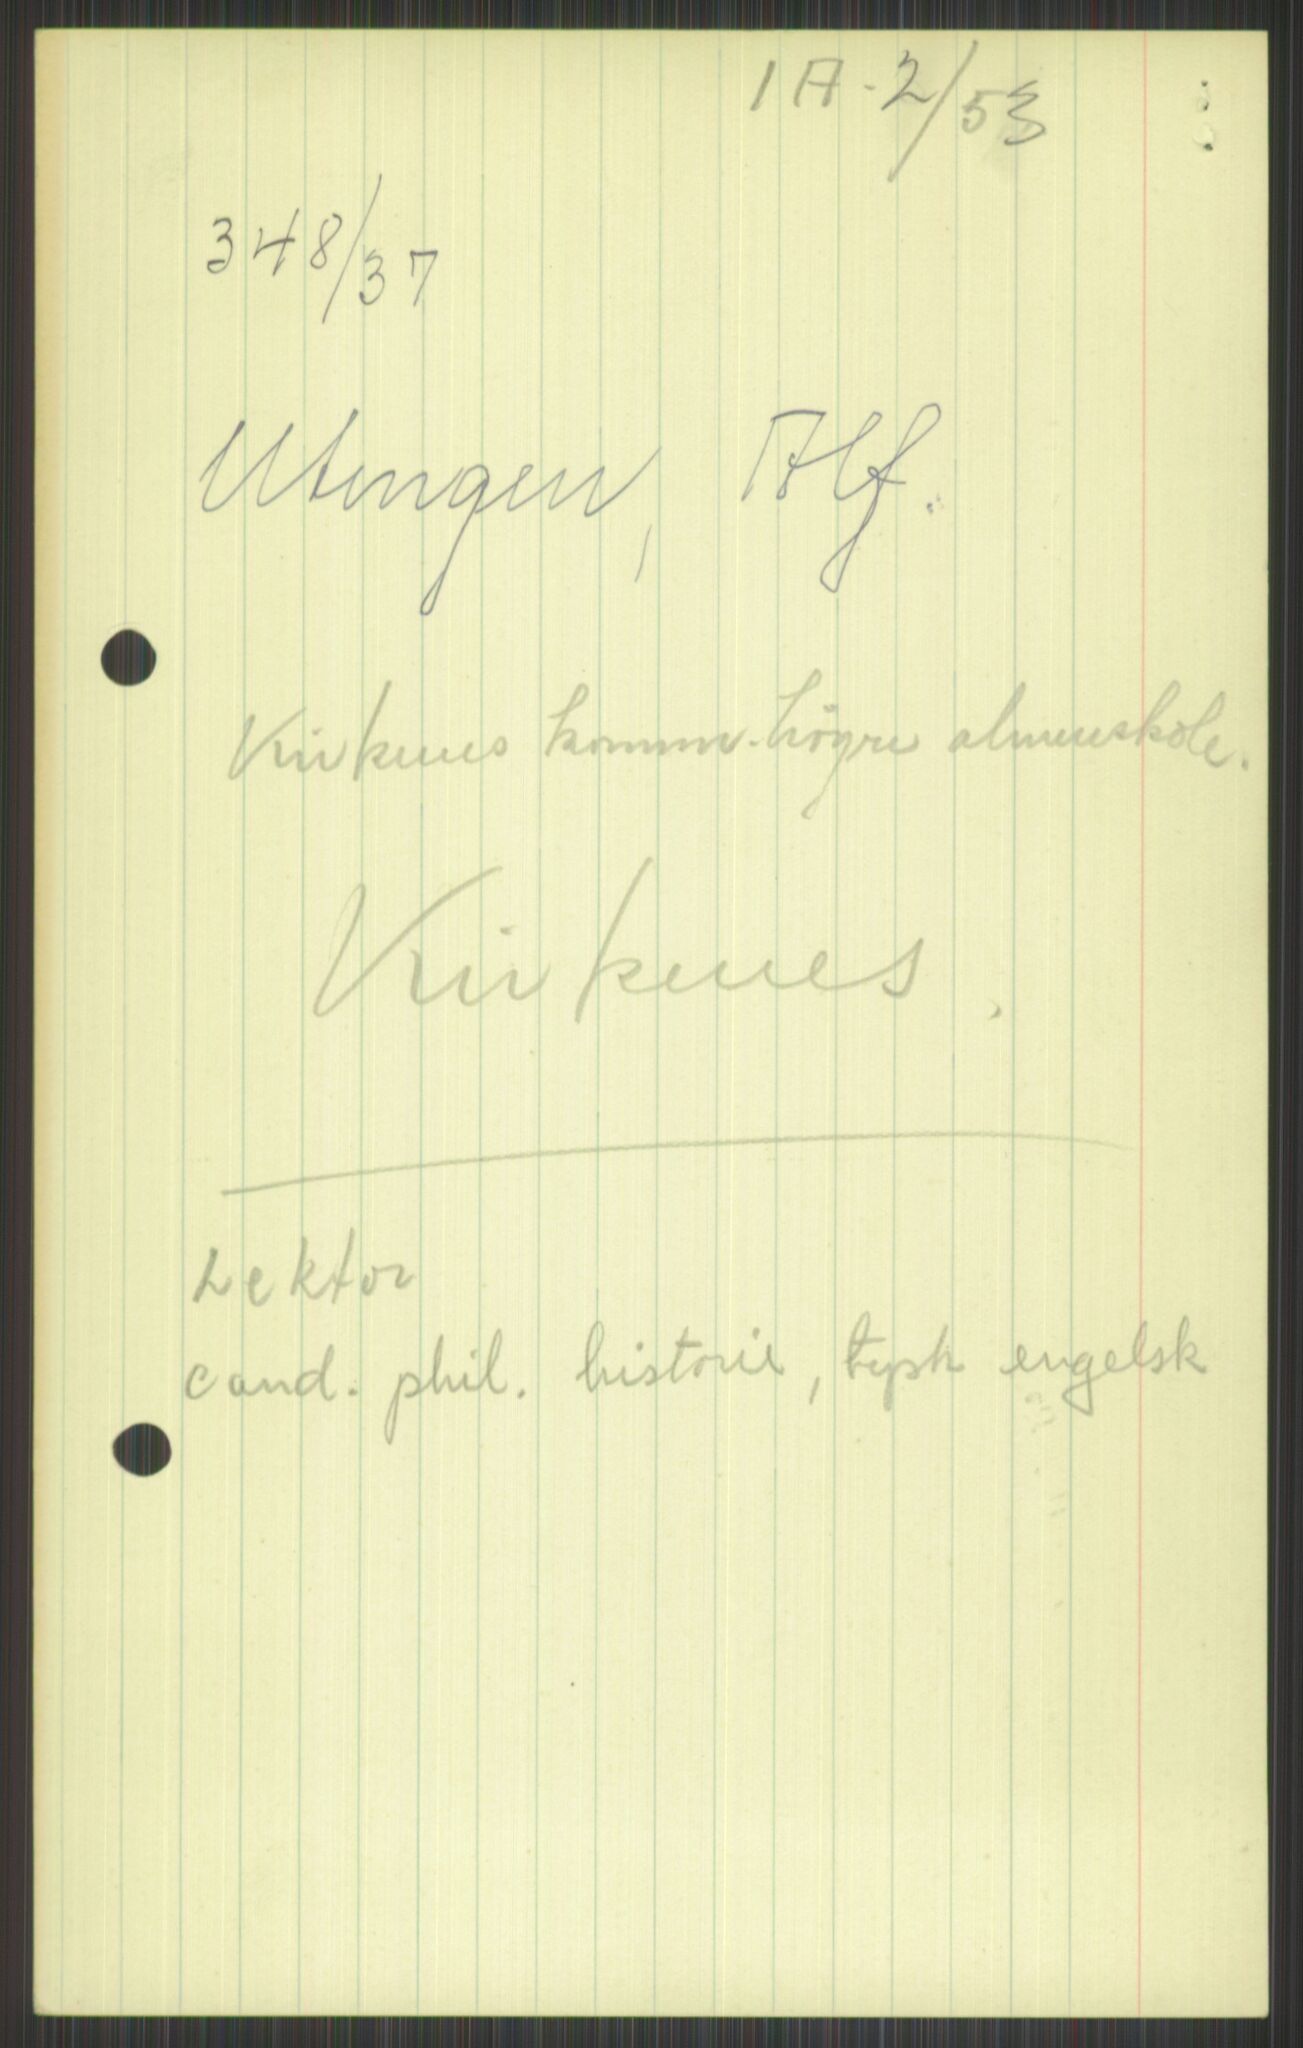 1 A - 2/53
348/37
Utengen, Alf.
Kirkenes komm. högre almenskole.
Kirkenes.
Lektor
cand. phil. historie, tysk engelsk